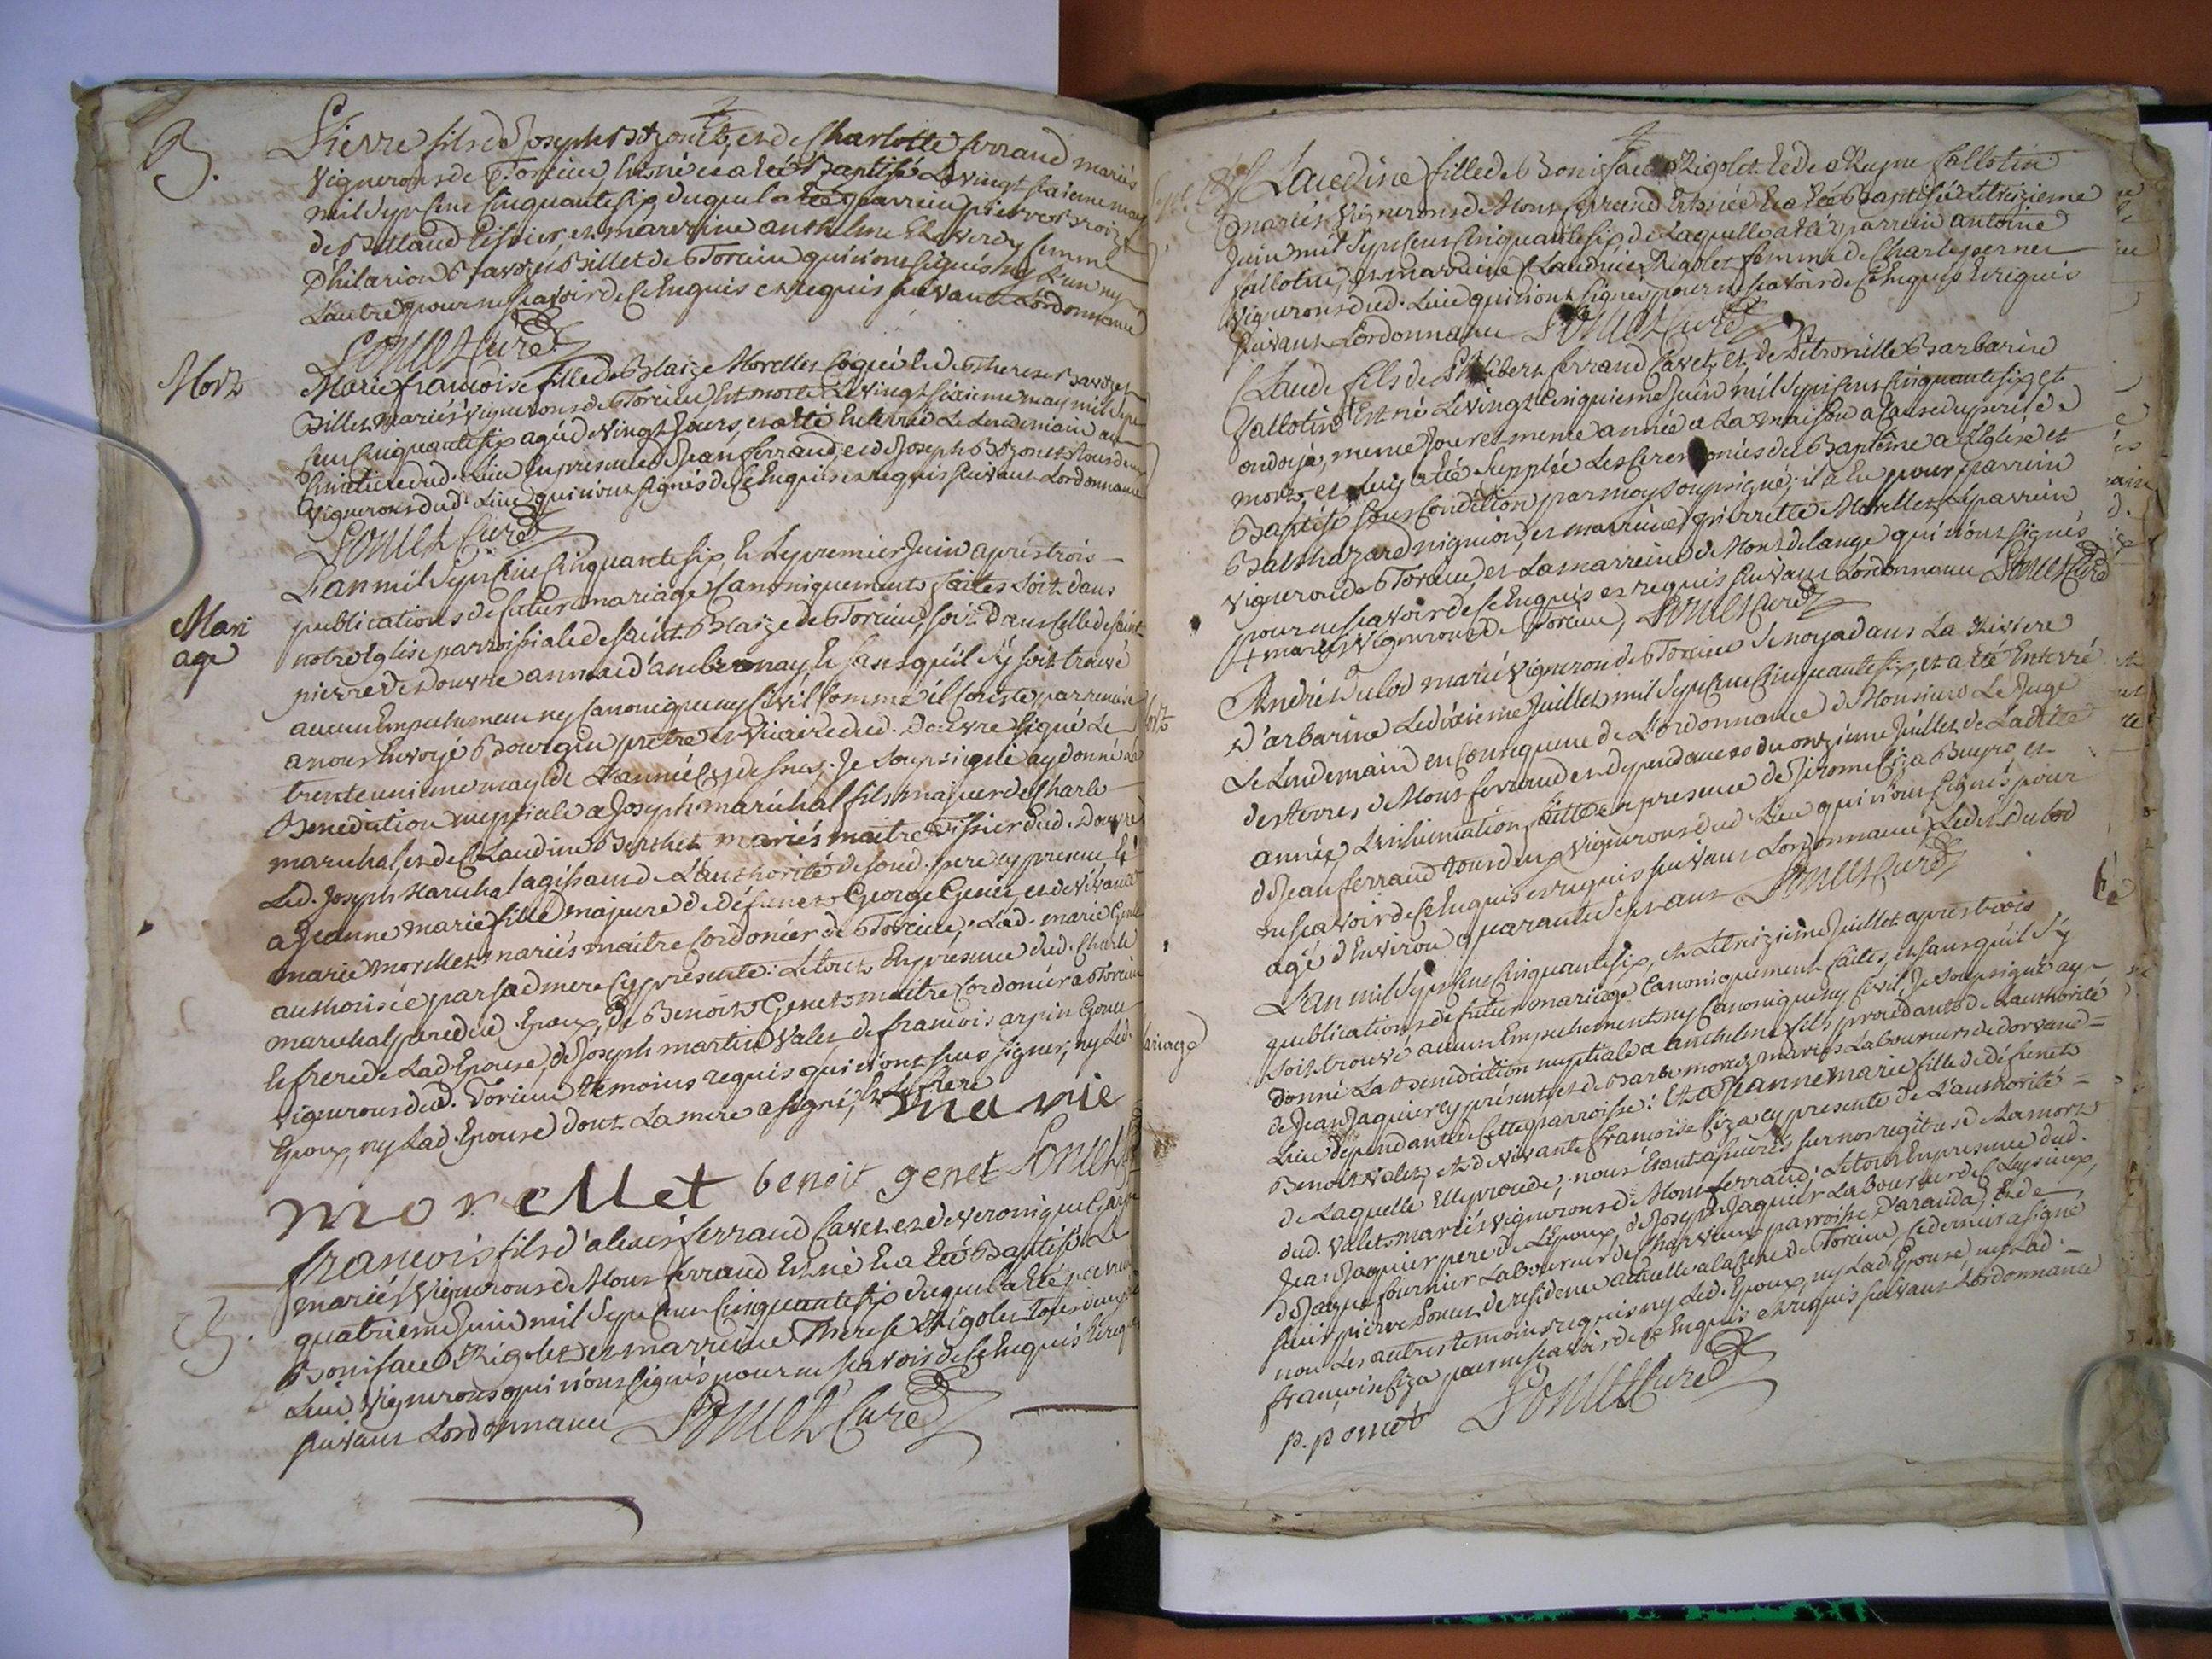 B.
Pierre fils de Joseph et de Charlotte ferrand mariés
vignerons de Torcieu Est né et a eté Baptisé Le vingt sixieme may
mil Sept Cent Cinquante six duquel a eté parrein pierre
de Tissier, et marreine anthelme femme
D'hilarion Billet de Torcieu qui n'ont signés ny L'un ny
L'autre pour ne scavoir de Ce Enquis et requis suivant Lordonnance
Poncet Curé
Mort
Marie francoise fille de Blaize Morellet et de therese
Billet mariés vignerons de Torcieu Est morte Le vingt sixieme may mil sept
Cent Cinquante six agée de vingt Jours, et a eté Enterrée Le Lendemain au
Cimetiere dud. Lieu En presence de Jean ferrand, et de Joseph tous deux
vignerons dud. Lieu qui n'ont signés de Ce Enquis et requis suivant Lordonnance
Poncet Curé
Mari
age
L'an mil Sept Cent Cinquante six, et Le premier Juin apres trois
publications de futur mariage Canoniquement faites soit dans
notre Eglise parroissiale de saint Blaize de Torcieu, soit dans Celle de saint
pierre de Douvre annexe d'ambronay, et sans qu'il s'y soit trouvé
aucun Empechement ny Canonique ny Civil Comme il Conste par remise
a nous Envoyé Bourgin pretre et vicaire dud. Douvre signé Le
trente unieme may de L'année Cy dessus. Je soussigné ay donné La
Benediction nuptiale a Joseph maréchal fils majeur de Charle
maréchal, et de Claudine Berthet mariés maitre Tissier dud. Douvre
Led. Joseph Marechal agissant de L'authorité de soud. pere cy present Et
a Jeanne marie fille majeure de défunct George Genet, et de vivante
marie morellet mariés maitre Cordonier de Torcieu, Lad. marie Genet
authorisée par sad mere Cy presente: Le tout En presence dud. Charle
marechal pere dud. Epoux, de Benoit Genet maitre Cordonier a Torcieu
Et frere de Lad Epouse, de Joseph martin valet de francois arpin
vignerons dud. Torcieu temoins requis qui n'ont sceu signer, ny Led.
Epoux, ny Lad. Epouse dont La mere a signé, Et Le frere
marie
morellet benoit genet Poncet
B.
francois fils d'alexis ferrand Cavet et de veronique
mariés vignerons de Mont ferrand Est né Et a Eté Baptisé Le
quatrieme Juin mil Sept Cent Cinquante six duquel a eté parrein
Boniface Rigolet et marreine Therese Rigolet tous deux
Lieu vignerons qui n'ont signés pour ne scavoir de Ce Enquis Et requis
suivant Lordonnance Poncet Curé
B
Claudine fille de Boniface Rigolet Et de Reyne fallotin
mariés vignerons de Mont ferrand Est née Et a Eté Baptisée Le treizieme
Juin mil Sept Cent Cinquante six, de Laquelle a eté parrein antoine
fallotin, et marreine Claudine Rigolet femme de Charle pernet
vignerons dud. Lieu qui n'ont signés pour ne scavoir de Ce Enquis Et requis
suivant Lordonnance Poncet Curé
Claude fils de Philibert ferrand Cavet, et de Petronille Barbarin
fallotin + Est né Le vingt Cinquieme Juin mil Sept Cent Cinquante six, et
ondoyé, meme Jour et meme année a La maison a Cause du peril de
mort, et Luy a eté supplée Les Ceremonies du Baptême a L'Eglise et
Baptisé sous Condition par moy soussigné; il a Eu pour parrein
Balthazard nignion, et marreine pierrette Morellet, Le parrein
vigneron de Torcieu, et La marreine de Mont de lange qui n'ont signés
pour ne scavoir de Ce Enquis et requis suivant Lordonnance Poncet Curé
+ mariés vignerons de Torcieu, Poncet Curé
Mort
André Dulod marié vigneron de Torcieu se noya dans La Riviere
D'arbarine Le dixieme Juillet mil Sept Cent Cinquante six, et a eté Enterré
Le Lendemain en Consequence de L'ordonnance de Monsieur Le Juge
des terres de Mont ferrand et dependances du onzieme Juillet de Ladite
année, L'inhumation faitte en presence de Jerome Ciza Buyro et
de Jean ferrand tous deux vignerons dud. Lieu qui n'ont signés pour
ne scavoir de Ce Enquis et requis suivant Lordonnance Ledit Dulod
agé d'Environ quarante Sept ans Poncet Curé
Mariage
L'an mil Sept Cent Cinquante six, et Le treizieme Juillet apres trois
publications de futur mariage Canoniquement faites, et sans qu'il s'y
soit trouvé aucun Empechement ny Canonique ny Civil, Je soussigné ay
donné La Benediction nuptiale a anthelme fils procedant de L'authorité
de Jean Jaquier cy present et de Barbe morel mariés Laboureurs de dorvand =
Lieu dépendant de Cette parroisse: Et a Jeanne marie fille de défunct
Benoit valet, et de vivante francoise Ciza cy presente de L'authorité =
de Laquelle Elle procede, nous Etant assurés sur nos regitres de La mort
dud. valet mariés vignerons de Mont ferrand; Le tout En presence dud.
Jean Jaquier pere de L'époux, de Joseph Jaquier Laboureur de Cleysieux,
de Jaque fournier Laboureur de Charvieux parroisse D'aranda, Et de
sieur pierre Poncet de residence actuelle a La Cure de Torcieu, Ce dernier a signé
non Les autres temoins requis ny Led. Epoux, ny Lad. Epouse ny Lad.
francoise Ciza pour ne scavoir de Ce Enquis et requis suivant Lordonnance
p. poncet Poncet Curé